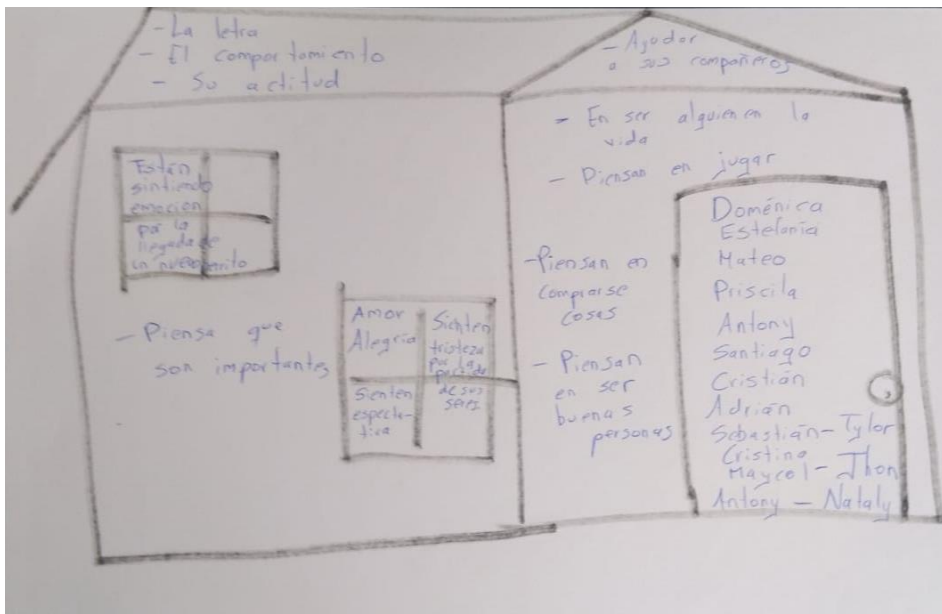 - La letra
- El comportamiento
- Su actitud
- Ayudar
a sus compañeros
- En ser alguien en la
vida
- Piensan en jugar
Están
sintiendo
emoción
por la
llegada de
un nuevo
- Piensa que
son importantes
Amor
Alegría
Sienten
tristeza
por la
partida
de sus
seres
Sienten
- Piensan en
comprarse
cosas
- Piensan
en ser
buenas
personas
Doménica
Estefanía
Mateo
Priscila
Antony
Santiago
Cristián
Adrián
Sebastián - Tylor
Cristina
Maycol - Jhon
Antony - Nataly